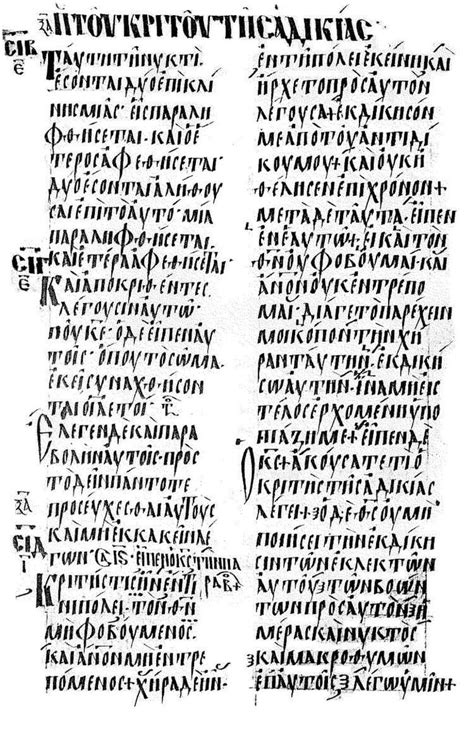 ΞΑ ΠΤΟΥΚΡΙΤΟΥΤΗΣΑΔΙΚΙΑΣ
ΣΙΒ ΤΑΥΤΗΤΗΝΥΚΤΙ
Ε ΕΣΟΝΤΑΙΔΥΟΕΠΙΚΛΙ
ΝΗΣΜΙΑΣ· ΕΙΣΠΑΡΑΛΗ
ΦΘΗΣΕΤΑΙ· ΚΑΙΟΕ
ΤΕΡΟΣΑΦΕΘΗΣΕΤΑΙ·
ΔΥΟΕΣΟΝΤΑΙΑΛΗΘΟΥ
ΣΑΙΕΠΙΤΟΑΥΤΟ· ΜΙΑ
ΠΑΡΑΛΗΦΘΗΣΕΤΑΙ·
ΣΙΓ ΚΑΙΕΤΕΡΑΑΦΕΘΗΣΕΤΑΙ·
Ε ΚΑΙΑΠΟΚΡΙΘΕΝΤΕΣ
ΛΕΓΟΥΣΙΝΑΥΤΩ·
ΠΟΥΚΕ· ΟΔΕΕΙΠΕΝΑΥ
ΤΟΙΣ· ΟΠΟΥΤΟΣΩΜΑ·
ΕΚΕΙΣΥΝΑΧΘΗΣΟΝ
ΤΑΙΟΙΑΕΤΟΙ·
ΕΛΕΓΕΝΔΕΚΑΙΠΑΡΑ
ΒΟΛΗΝΑΥΤΟΙΣ· ΠΡΟΣ
ΤΟΔΕΙΝΠΑΝΤΟΤΕ
ΞΑ ΠΡΟΣΕΥΧΕΣΘΑΙΑΥΤΟΥΣ
ΣΙΔ ΚΑΙΜΗΕΚΚΑΚΕΙΝΛΕ
Ι ΓΩΝ· ΕΙΠΕΝΟΚΣΤΗΝΠΑ
ΚΡΙΤΗΣΤΙΣΗΝΕΝΤΙ ΡΑΒ
ΝΙΠΟΛΕΙ· ΤΟΝΘΝ
ΜΗΦΟΒΟΥΜΕΝΟΣ·
ΚΑΙΑΝΟΝΜΗΕΝΤΡΕ
ΠΟΜΕΝΟΣ+ΧΗΡΑΔΕΗΝ·
ΕΝΤΗΠΟΛΕΙΕΚΕΙΝΗΚΑΙ
ΗΡΧΕΤΟΠΡΟΣΑΥΤΟΝ
ΛΕΓΟΥΣΑ+ΕΚΔΙΚΗΣΟΝ
ΜΕΑΠΟΤΟΥΑΝΤΙΔΙ
ΚΟΥΜΟΥ+ΚΑΙΟΥΚΗ
ΘΕΛΗΣΕΝΕΠΙΧΡΟΝΟΝ+
ΜΕΤΑΔΕΤΑΥΤΑ·ΕΙΠΕΝ
ΕΝΕΑΥΤΩ+ΕΙΚΑΙΤΟΝ
ΘΝΟΥΦΟΒΟΥΜΑΙ·ΚΑΙ
ΑΝΟΝΟΥΚΕΝΤΡΕΠΟ
ΜΑΙ·ΔΙΑΓΕΤΟΠΑΡΕΧΕΙΝ
ΜΟΙΚΟΠΟΝΤΗΝΧΗ
ΡΑΝΤΑΥΤΗΝ·ΕΚΔΙΚΗ
ΣΩΑΥΤΗΝ·ΙΝΑΜΗΕΙΣ
ΤΕΛΟΣΕΡΧΟΜΕΝΗΥΠΟ
ΠΙΑΖΗΜΕ+ΕΙΠΕΝΔΕ
ΟΚΣ+ΑΚΟΥΣΑΤΕΤΙΟ
ΚΡΙΤΗΣΤΗΣΑΔΙΚΙΑΣ
ΛΕΓΕΙ+ΟΔΕΘΣΟΥΜΗ
ΠΟΙΗΣΕΙΤΗΝΕΚΔΙΚΗ
ΣΙΝΤΩΝΕΚΛΕΚΤΩΝ
ΑΥΤΟΥΤΩΝΒΟΩΝ
ΤΩΝΠΡΟΣΑΥΤΟΝΗ
ΜΕΡΑΣΚΑΙΝΥΚΤΟΣ
ΚΑΙΜΑΚΡΟΘΥΜΩΝ
ΕΠΑΥΤΟΙΣΛΕΓΩΥΜΙΝ+